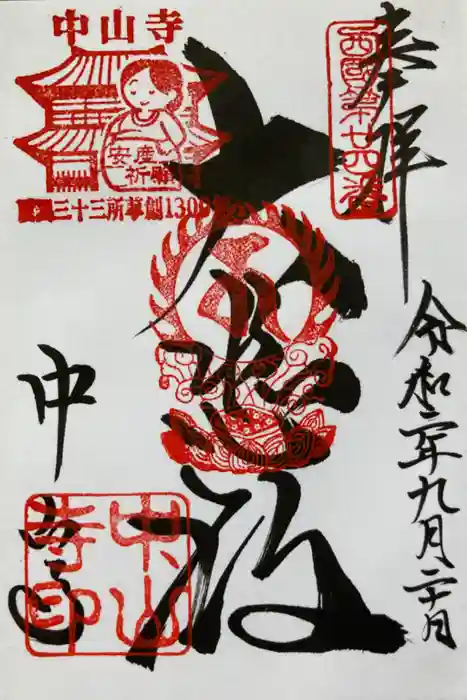 奉拝
西国第廿四番
令和二年九月二十日
大悲殿
中山寺
安産
祈願
三十三所草創1300年
中山寺
中山
寺印